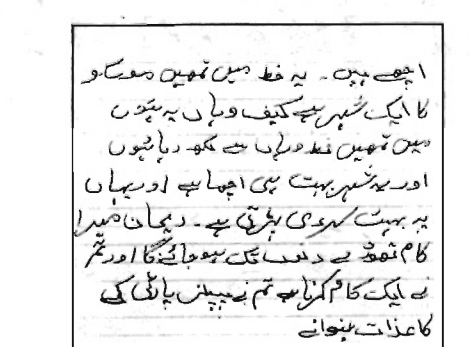 اچھے ہیں۔ یہ خط میں تمھیں موسکو
کا ایک شہر ہے کیف وہاں پہ ہوں
میں تمھیں خط وہاں سے لکھ رہا ہوں
اور یہ شہر بہت ہی اچھا ہے اور یہاں
پہ بہت سردی پڑتی ہے۔ یہاں میرا
کام تھوڑے دنوں تک ہو جائے گا اور تم
نے ایک کام کرنا ہے تم نے پیپلز پارٹی کی
کاغذات بنوانے